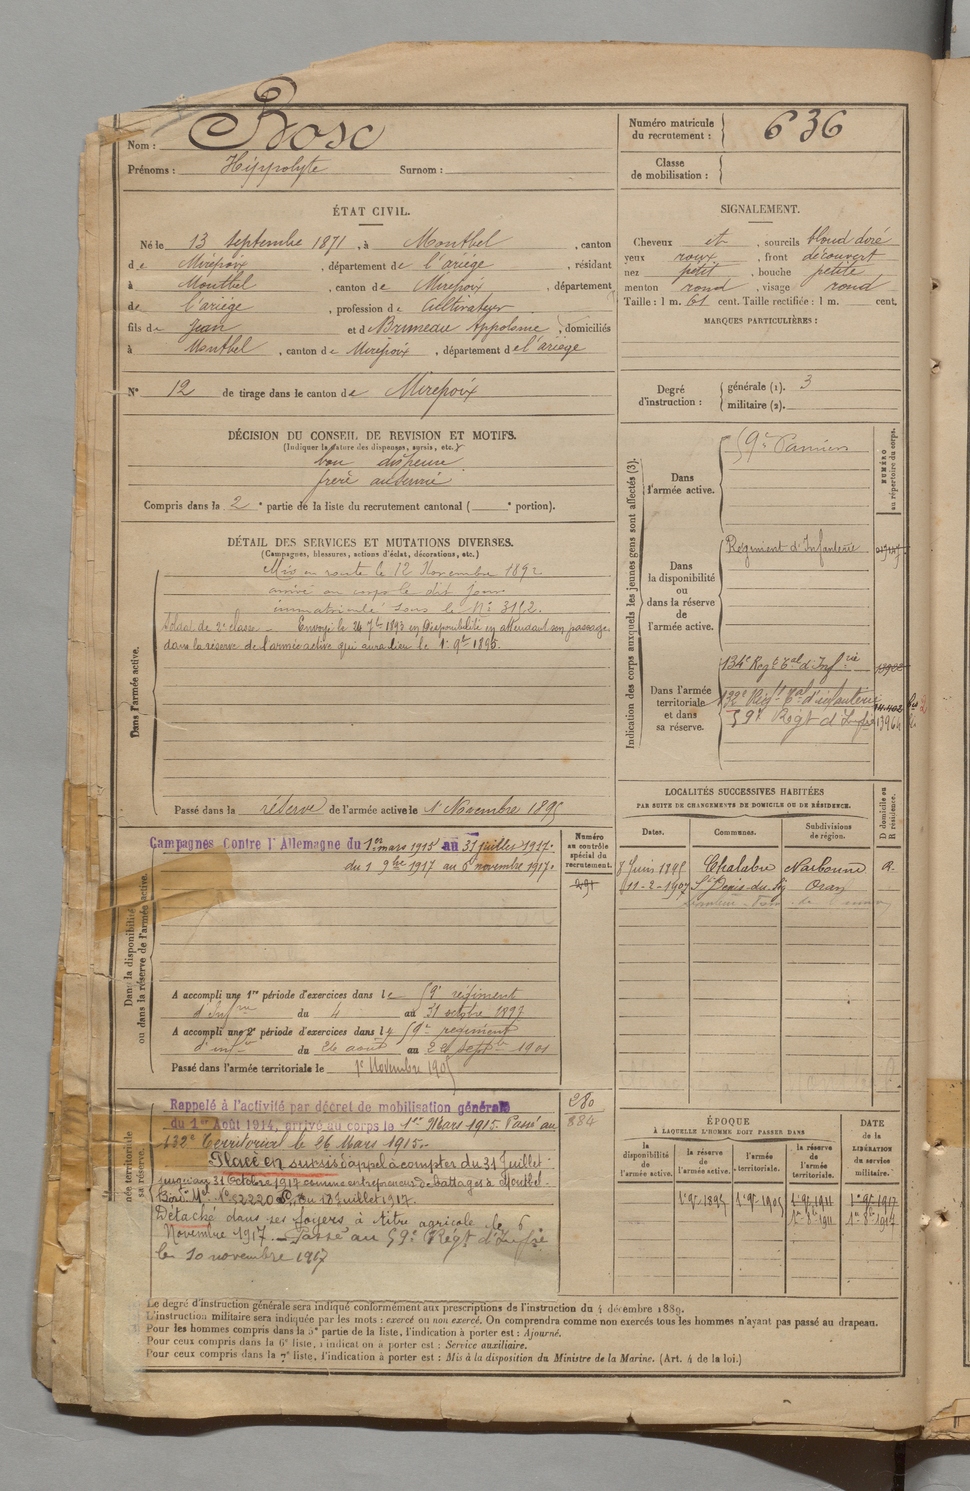 Nom : Bosc
Prénoms : Hippolyte Surnom :
Numéro matricule du recrutement : 636
Classe de mobilisation :
ÉTAT CIVIL.
Né le 13 Septembre 1871, à Montbel, canton
de Mirepoix, département de l'ariège, résidant
à Montbel, canton de Mirepoix, département
de l'ariège, profession de Cultivateur
fils de Jean et de Bruneau Appolonie, domiciliés
à Montbel, canton de Mirepoix, département de l'ariège
N° 12 de tirage dans le canton de Mirepoix
SIGNALEMENT.
Cheveux et, sourcils blond doré
yeux roux, front découvert
nez petit, bouche petite
menton rond, visage rond
Taille : 1 m. 61 cent. Taille rectifiée : 1 m. cent.
MARQUES PARTICULIÈRES :
Degré d'instruction : générale (1). 3
militaire (2).
DÉCISION DU CONSEIL DE REVISION ET MOTIFS.
(Indiquer la nature des dispenses, sursis, etc.)
bon dispensé
frère au service
Compris dans la 2e partie de la liste du recrutement cantonal ( e portion).
DÉTAIL DES SERVICES ET MUTATIONS DIVERSES.
(Campagnes, blessures, actions d'éclat, décorations, etc.)
Dans l'armée active.
Mis en route le 12 Novembre 1892
arrivé au corps le dit jour
immatriculé sous le N° 3152.
Soldat de 2e classe. Envoyé le 24 7bre 1893 en disponibilité en attendant son passage
dans la réserve de l'armée active qui aura lieu le 1er 9bre 1895.
Passé dans la réserve de l'armée active le 1 Novembre 1895
Indication des corps auxquels les jeunes gens sont affectés (3).
NUMÉRO au répertoire du corps.
Dans l'armée active.
59e Pamiers
Dans la disponibilité ou dans la réserve de l'armée active.
Régiment d'Infanterie
Dans l'armée territoriale et dans sa réserve.
134e Regt Tal d'Infrie
132e Régt Tal d'infanterie
59e Régt d'Infie 13964
LOCALITÉS SUCCESSIVES HABITÉES
PAR SUITE DE CHANGEMENTS DE DOMICILE OU DE RÉSIDENCE.
Dates. Communes. Subdivisions de région. D domicile ou R résidence.
8 Juin 1895 Chalabre Narbonne R.
11-2-1907 St Denis-du-Sig Oran
Dans la disponibilité ou dans la réserve de l'armée active.
Campagnes Contre l'Allemagne du 1er mars 1915 au 31 juillet 1917.
du 1 9bre 1917 au 6 novembre 1917.
Numéro au contrôle spécial du recrutement.
291
A accompli une 1re période d'exercices dans le 59e régiment
d'Infrie du 4 au 31 octobre 1897
A accompli une 2e période d'exercices dans le 59e régiment
d'infrie du 26 août au 22 septbre 1901
Passé dans l'armée territoriale le 1er Novembre 1905
280
884
Rappelé à l'activité par décret de mobilisation générale
du 1er Août 1914, arrivé au corps le 1er Mars 1915. Passé au
132e Territorial le 26 Mars 1915.
Placé en sursis d'appel à compter du 31 Juillet
jusqu'au 31 Octobre 1917 comme entrepreneur de battages à Montbel.
Détaché dans ses foyers à titre agricole le 6
Novembre 1917. Passé au 59e Régt d'Infie
le 10 novembre 1917
ÉPOQUE
À LAQUELLE L'HOMME DOIT PASSER DANS
la disponibilité de l'armée active. la réserve de l'armée active. l'armée territoriale. la réserve de l'armée territoriale.
DATE de la LIBÉRATION du service militaire.
1er 9bre 1895 1er 9bre 1905 1er 9bre 1911 1er 9bre 1917
1er 8bre 1911 1er 8bre 1917
Le degré d'instruction générale sera indiqué conformément aux prescriptions de l'instruction du 4 décembre 1889.
L'instruction militaire sera indiquée par les mots : exercé ou non exercé. On comprendra comme non exercés tous les hommes n'ayant pas passé au drapeau.
Pour les hommes compris dans la 5e partie de la liste, l'indication à porter est : Ajourné.
Pour ceux compris dans la 6e liste, l'indication à porter est : Service auxiliaire.
Pour ceux compris dans la 7e liste, l'indication à porter est : Mis à la disposition du Ministre de la Marine. (Art. 4 de la loi.)